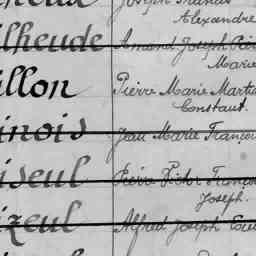 Joseph
Alexandre
ilheude Amand Joseph
Marie
illon Pierre Marie Marti
Constant.
inois Jean Marie François
iseul Pierre Victor François
Joseph.
izeul Alfred Joseph